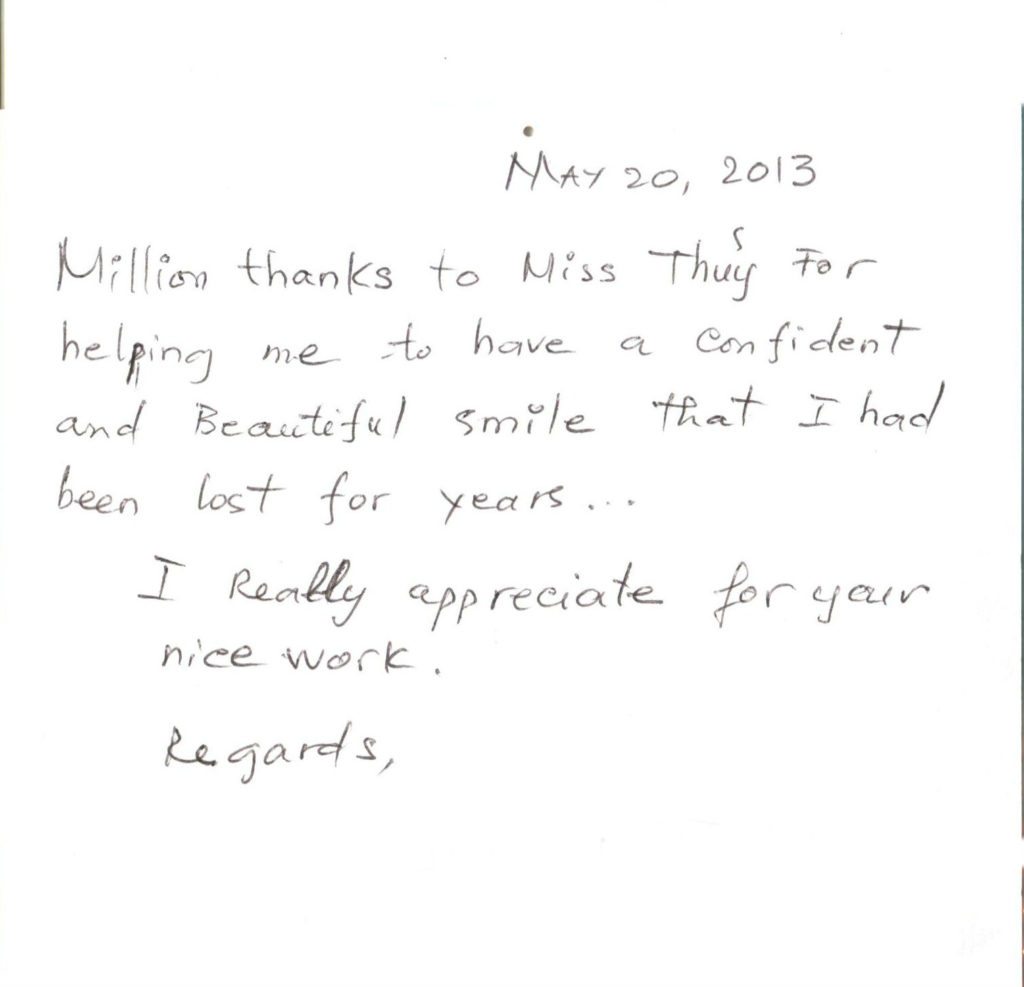 May 20, 2013
Million thanks to Miss Thuỷ For
helping me to have a confident
and Beautiful smile that I had
been lost for years...
I Really appreciate for your
nice work.
Regards,